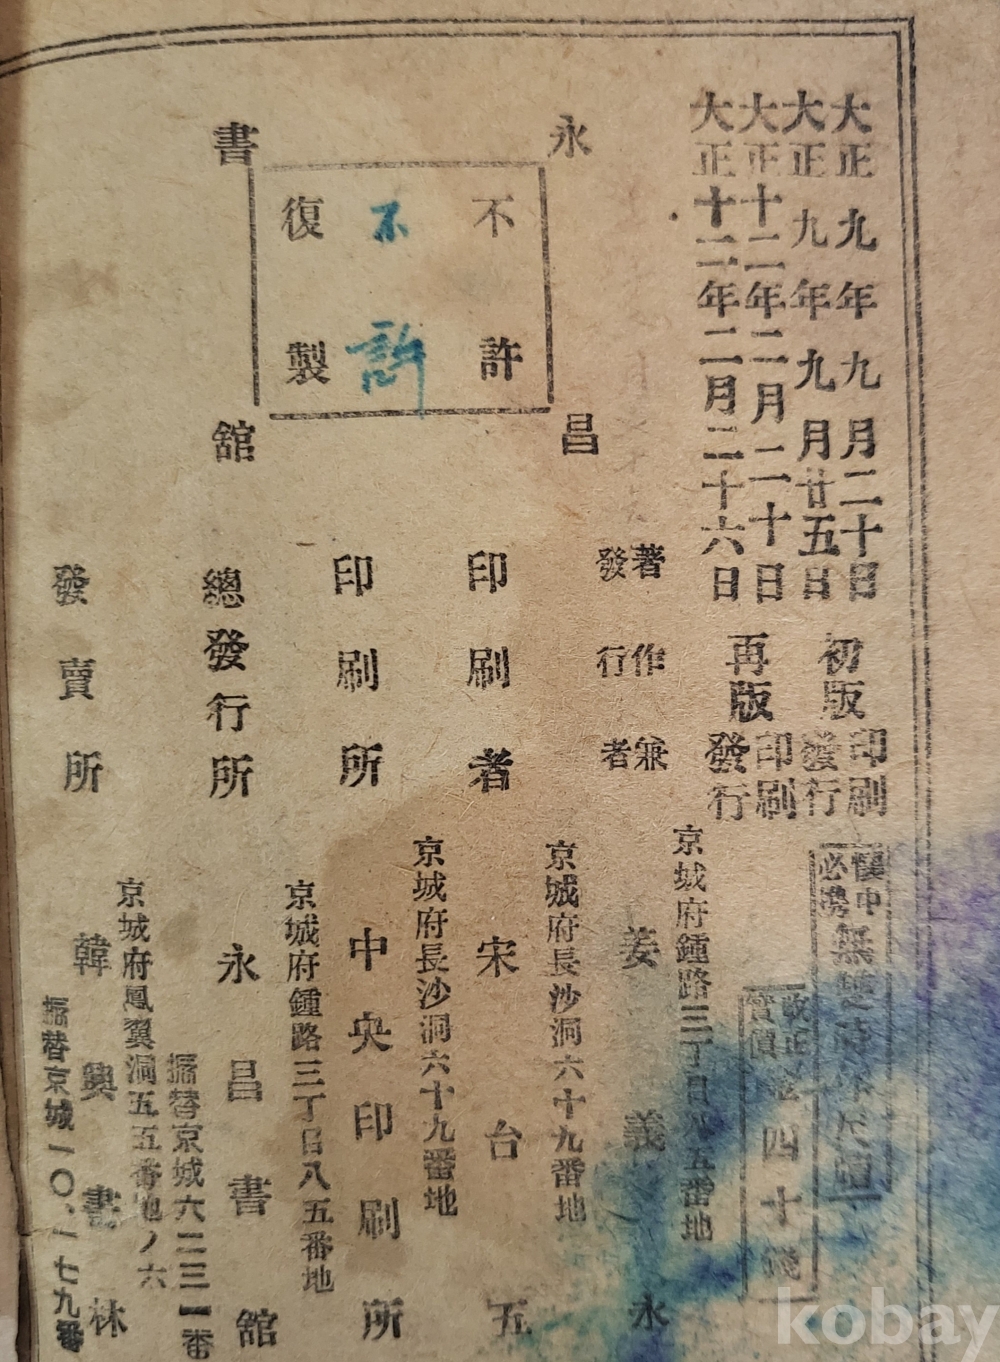 大正九年九月二十日
大正九年九月廿五日
初版
印刷
發行
大正十二年二月二十日
大正十二年二月二十六日
再版
印刷
發行
懷中
必携
無雙
改正
實價
四十錢
永昌書舘
不許
復製
不許
著作兼
發行者
京城府鍾路三丁目八五番地
姜義永
印刷者
京城府長沙洞六十九番地
宋台五
印刷所
京城府長沙洞六十九番地
中央印刷所
總發行所
京城府鍾路三丁目八五番地
永昌書舘
振替京城六二三一番
發賣所
京城府鳳翼洞五五番地ノ六
韓興書林
振替京城一〇、一七九番
kobay